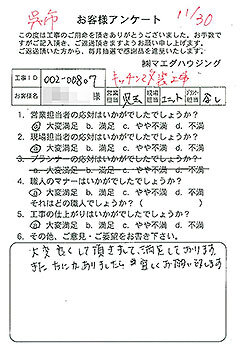 呉市 お客様アンケート 11/30
この度は工事のご用命を頂きありがとうございました。お手数で
すがご記入頂き、ご返送頂きますようお願い申し上げます。
ご返送頂いた方から、毎月抽選で感謝品を進呈いたします。
㈱マエダハウジング
工事ID 002-00807 キッチン改装工事
お客様名 営業担当 児玉 現場担当 ユニット なし
1. 営業担当者の応対はいかがでしたでしょうか?
a. 大変満足 b. 満足 c. やや不満 d. 不満
2. 現場担当者の応対はいかがでしたでしょうか?
a. 大変満足 b. 満足 c. やや不満 d. 不満
3. プランナーの応対はいかがでしたでしょうか?
a. 大変満足 b. 満足 c. やや不満 d. 不満
4. 職人のマナーはいかがでしたでしょうか?
a. 大変満足 b. 満足 c. やや不満 d. 不満
それはどの職人でしょうか?( )
5. 工事の仕上がりはいかがでしたでしょうか?
a. 大変満足 b. 満足 c. やや不満 d. 不満
6. その他、ご意見・ご要望をお書き下さい。
大変良くして頂きまして、満足しております。
また なにかありましたら 宜しくお願い致します